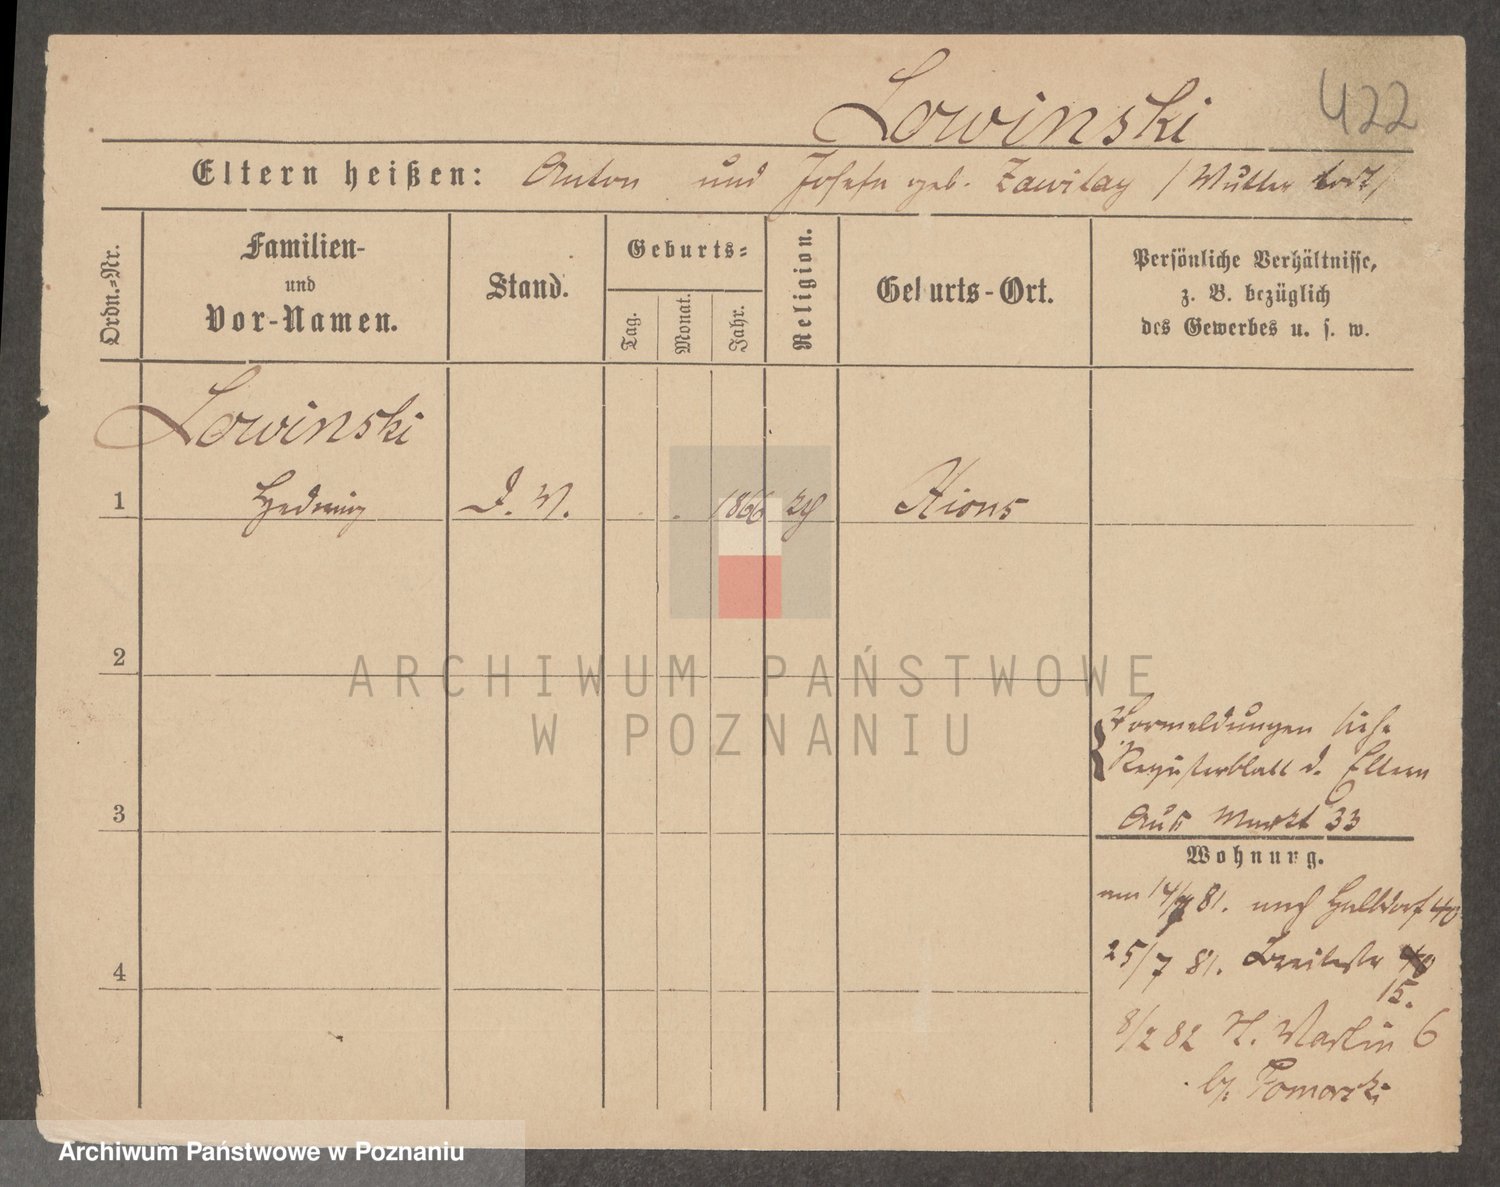 Lowinski
422
Eltern heißen: Anton und Josefa geb. Zawilay / Mutter todt /
Ordn.-Nr.
Familien-
und
Vor-Namen.
Stand.
Geburts-
Tag.
Monat.
Jahr.
Religion.
Geburts-Ort.
Persönliche Verhältnisse,
z. B. bezüglich
des Gewerbes u. s. w.
Lowinski
1 Hedwig D. M. 1866 Xions
2
ARCHIWUM PAŃSTWOWE
W POZNANIU
Vormeldungen siehe
Registerblatt d. Eltern
3
Aus Markt 33
Wohnung.
am 14/ 81. nach Halbdorf 40
4
25/7 81. Breitestr
15.
8/2 82 St. Martin 6
b/. Pomorski
Archiwum Państwowe w Poznaniu